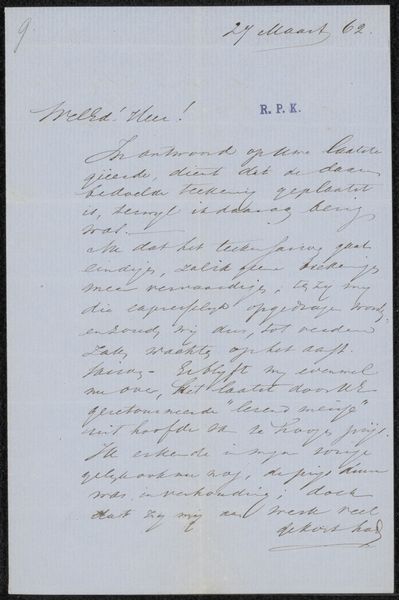 9
27 Maart 62.
R. P. K.
WelEd! Heer!
In antwoord op Uwe laatste
geëerde, dient dat de daarin
bedoelde teekening geplaatst
is, terwyl ik daaraan bezig
was. —
Na dat het teeken saisoen gaat
eindigen, zal ik geen teekeningen
meer vervaardigen, ten zy my
die opgedragen worden
en zoude wy dus, tot verdere
zaken wachten op het aanst.
saisoen - Er blyft my evenwel
nu over, het laatst door UE
geretourneerde "lezend meisje"
uit hoofde van te hooge prys.
Ik erkende in myn vorige
gelyk ook nu nog, de prys duur
was in verhouding; doch
dat zy my aan werk veel
gekost had